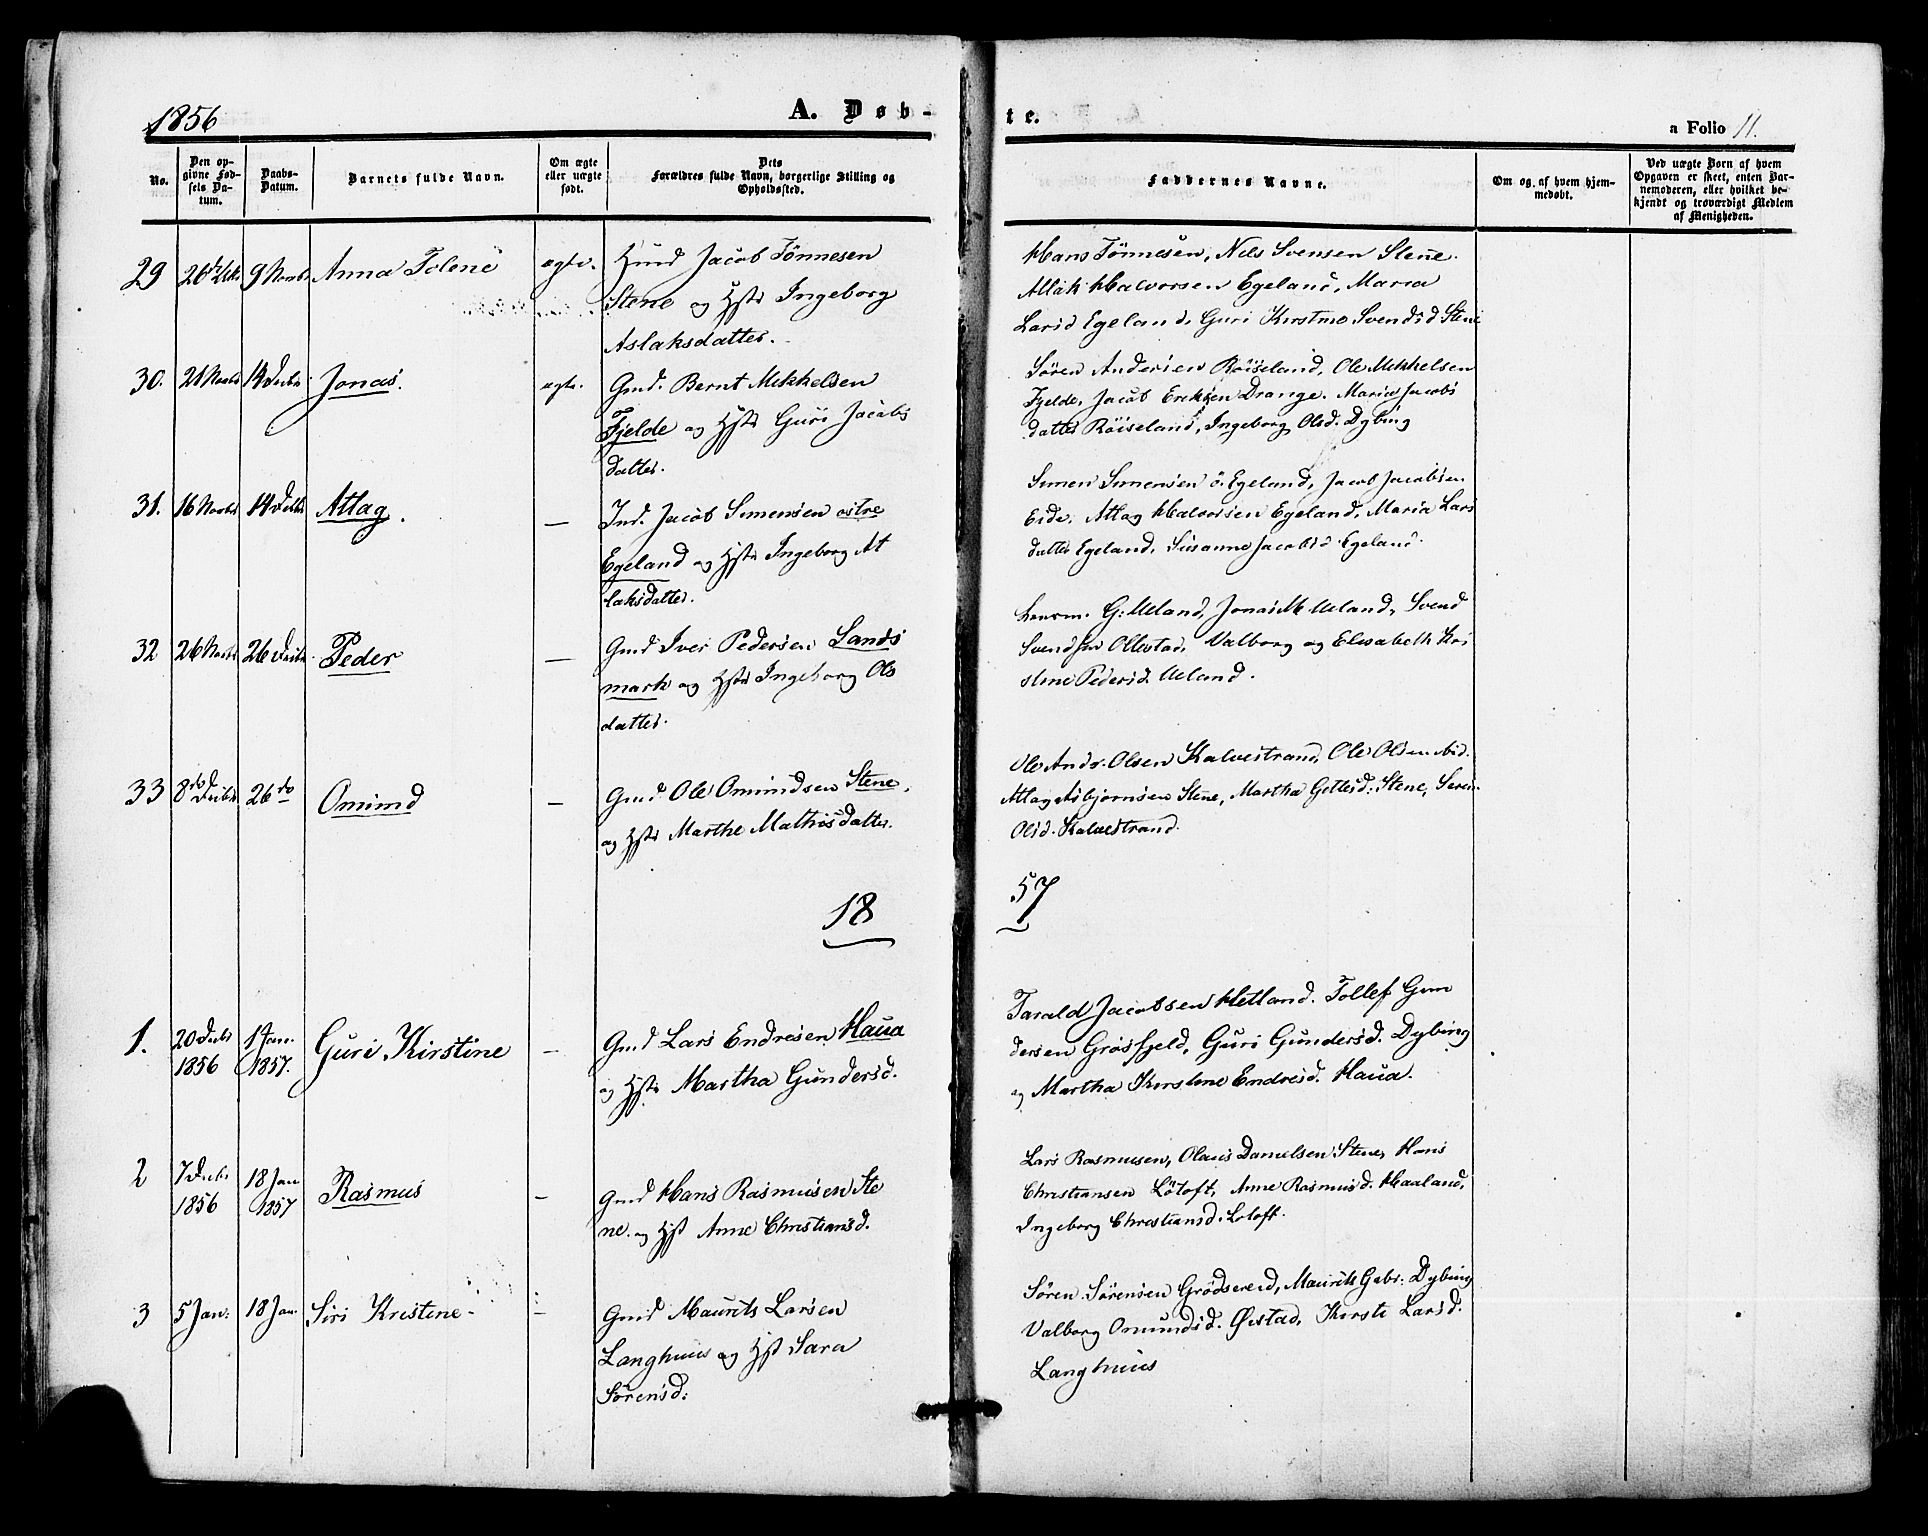 1856
A. Døb-
te.
a Folio 11.
No.
Den op-
givne Fød-
sels Da-
tum.
Daabs-
Datum.
Barnets fulde Navn.
Om ægte
eller uægte
født.
Dets
Forældres fulde Navn, borgerlige Stilling og
Opholdssted.
Faddernes Navne.
Om og af hvem hjem-
medøbt.
Ved uægte Børn af hvem
Opgaven er skeet, enten Bar-
nemoderen, eller hvilket be-
kjendt og troværdigt Medlem
af Menigheden.
29
9 Novbr
Anna Tolene
ægte.
Jacob Tönnesen
Stene og Hstr Ingeborg
Aslaksdatter.
Hans Tönnesen, Nils Svensen Stene.
Atlak Halvorsen Egeland, Maria
Larsd Egeland, Guri Kirstine Svendsd Stene
30.
21 Novbr
14 Decbr
Jonas.
ægte.
Gmd. Bernt Mikkelsen
Fjelde og Hstr Guri Jacobs
datter.
Søren Andersen Röiseland, Ole Mikkelsen
Fjelde, Jacob Eriksen Drange. Maria Jacobs
datter Röiseland, Ingeborg Olsd. Dybing
31.
16 Novbr
14 Decbr
Atlag.
—
Ind. Jacob Simensen østre
Egeland og Hstr Ingeborg At
laksdatter.
Simen Simensen ö. Egeland, Jacob Jacobsen
Eide, Atlag Halvorsen Egeland, Maria Lars
datter Egeland, Susanne Jacobsd. Egeland.
32
26 Novbr
26 Decbr.
Peder
—
Gmd Iver Pedersen Lands
mark og Hstr Ingeborg Ols
datter.
Lensm. G: Ueland, Jonas M Ueland, Svend
Svendsen Ollestad, Valborg og Elisabeth Kri
stine Pedersd. Ueland.
33
8de Decbr
26 do
Omund
—
Gmd Ole Omundsen Stene,
og Hstr Marthe Mathisdatter.
Ole Ands. Olsen Kalvestrand, Ole Olsen ibid.
Atlag Asbjørnsen Stene, Martha Gittlesd: Stene, Seren
Olsd. Kalvestrand.
18
57
1.
20 Decbr
1856
1 Jan.
1857.
Guri Kirstine
—
Gmd Lars Endresen Haua
og Hstr Martha Gundersd.
Tarald Jacobsen Hetland. Tollef Gun
dersen Grøsfjeld, Guri Gundersd. Dybing
og Martha Kirstine Endresd. Haua.
2
7 Decbr
1856
18 Jan
1857
Rasmus
—
Gmd Hans Rasmusen Ste
ne. og Hst Anne Christiansd.
Lars Rasmusen, Olaus Danielsen Stene, Hans
Christiansen Lötoft, Anne Rasmusd. Haaland,
Ingeborg Christiansd. Lotoft.
3
5 Jan:
18 Jan.
Siri Kristine
—
Gmd Maurits Larsen
Langhuus og Hst Sara
Sörensd:
Sören Sörensen Grödsereid, Maurits Gabr: Dybing
Valborg Omundsd. Østad, Kirsti Larsd.
Langhuus